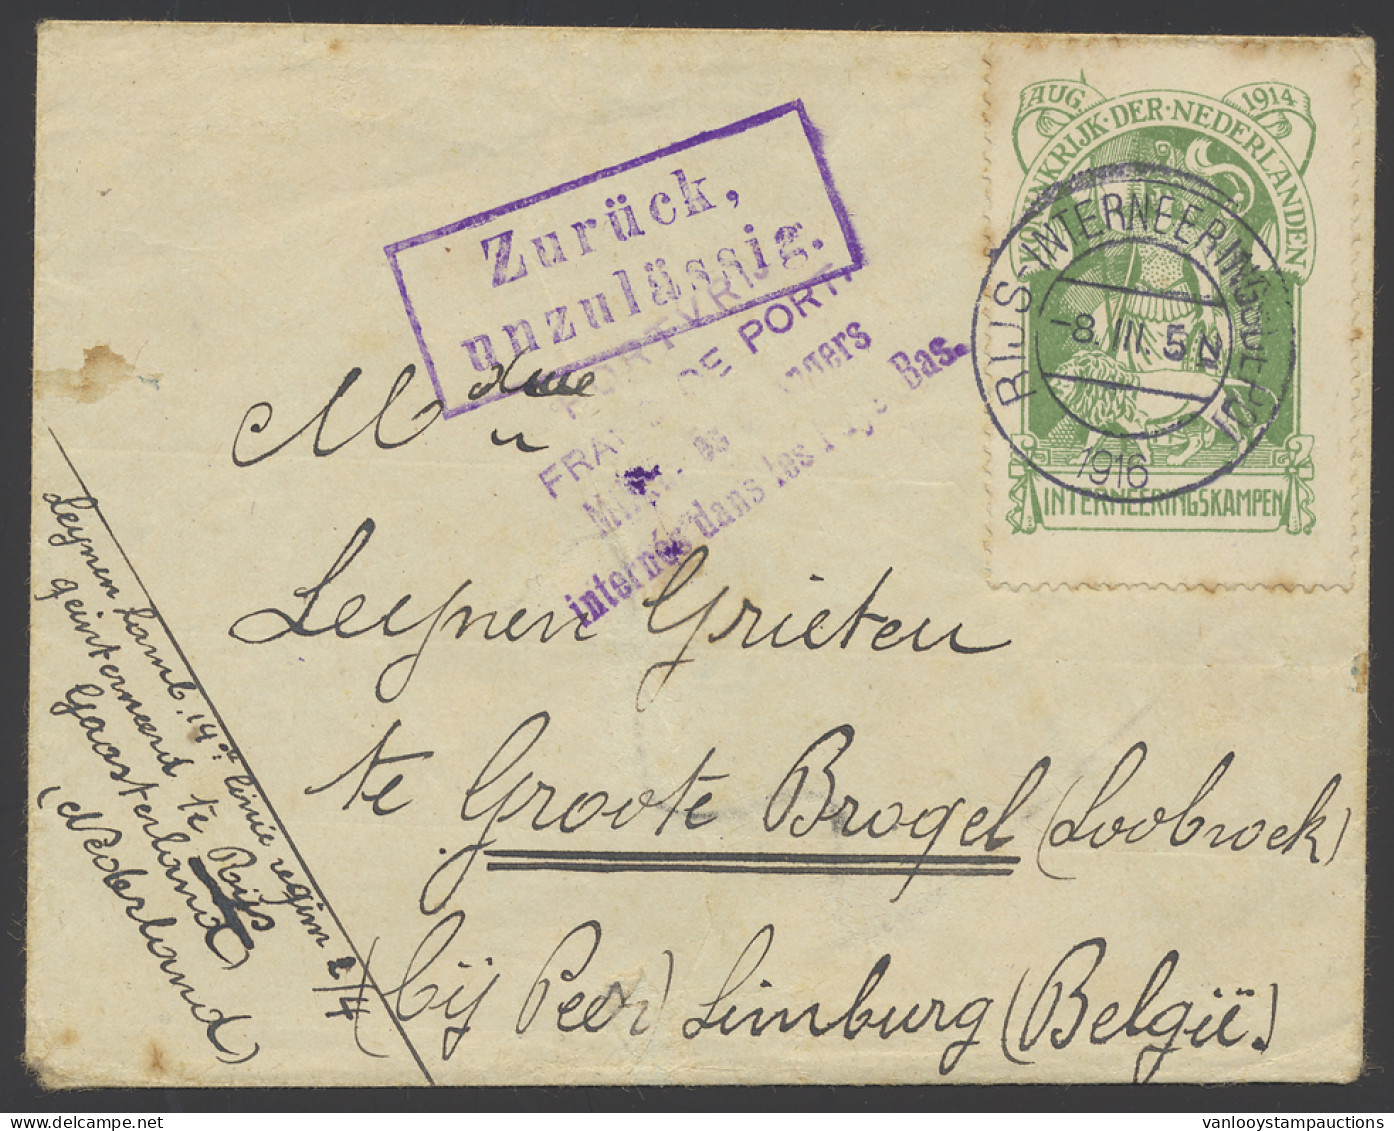 AUG. 1914
KONINKRIJK·DER·NEDERLANDEN
INTERNEERINGSKAMPEN
RIJS-INTERNEERINGDEPOT
-8.III. 5N
1916
Zurück,
unzulässig.
PORTVRIJ
FRANC DE PORT
Militaires étrangers
internés dans les Pays Bas.
Mdme
Leynen Grieten
te Groote Brogel (Loobroek)
(bij Peer) Limburg (België.)
Leynen Lamb. 14de linie regim 2/4
geinterneerd te Rijs
(Gaasterland)
(Nederland)
vanlooystampauctions